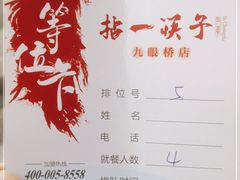 等位卡
拈一筷子
九眼桥店
排位号 5
姓名
电话
就餐人数 4
排队时间
加盟热线
400-005-8558